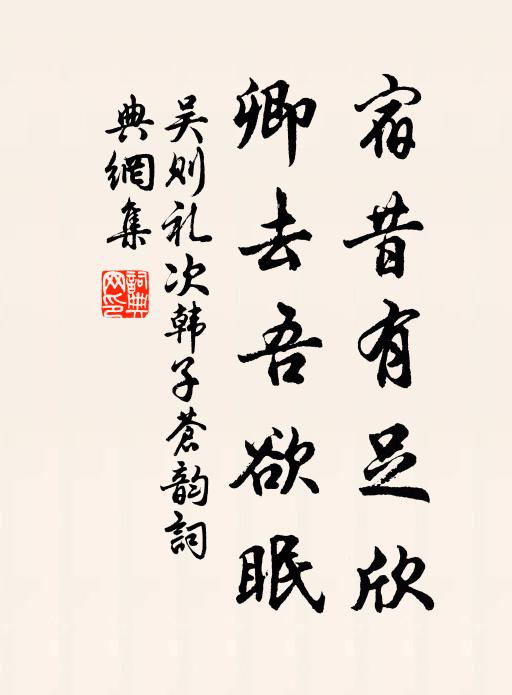 宿昔有足欣
卿去吾欲眠
吴则礼次韩子苍韵詞
典網集
詞典網印